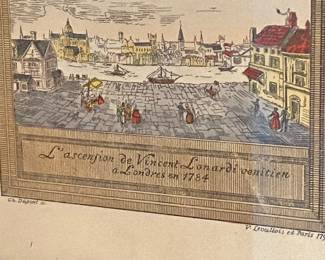 L'ascension de Vincent Lonardi venitien
a Londres en 1784
Ch. Dupont
V. et Paris